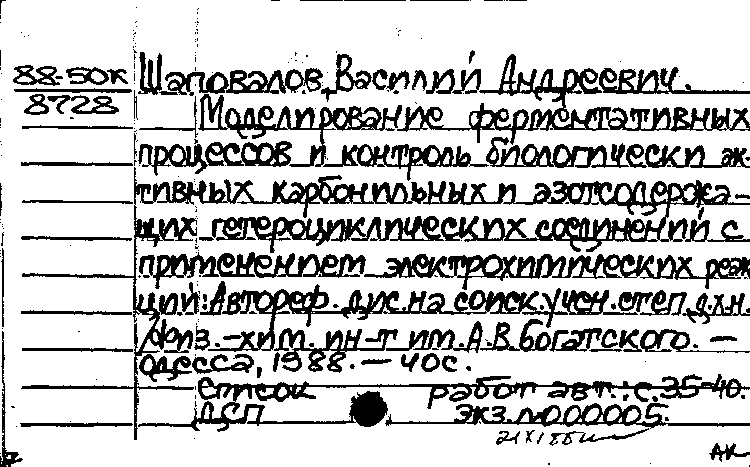 88-50К Шаповалов, Василий Андреевич.
8728
Моделирование ферментативных
процессов и контроль биологически ак-
тивных карбонильных и азотсодержа-
щих гетероциклических соединений с
применением электрохимических реак
ций: Автореф. дис. на соиск. учен. степ. д.х.н.
/Физ.-хим. ин-т им. А.В. Богатского. —
Одесса, 1988. — 40с.
Список работ авт.: с. 35-40.
ДСП экз. №000005.
АК